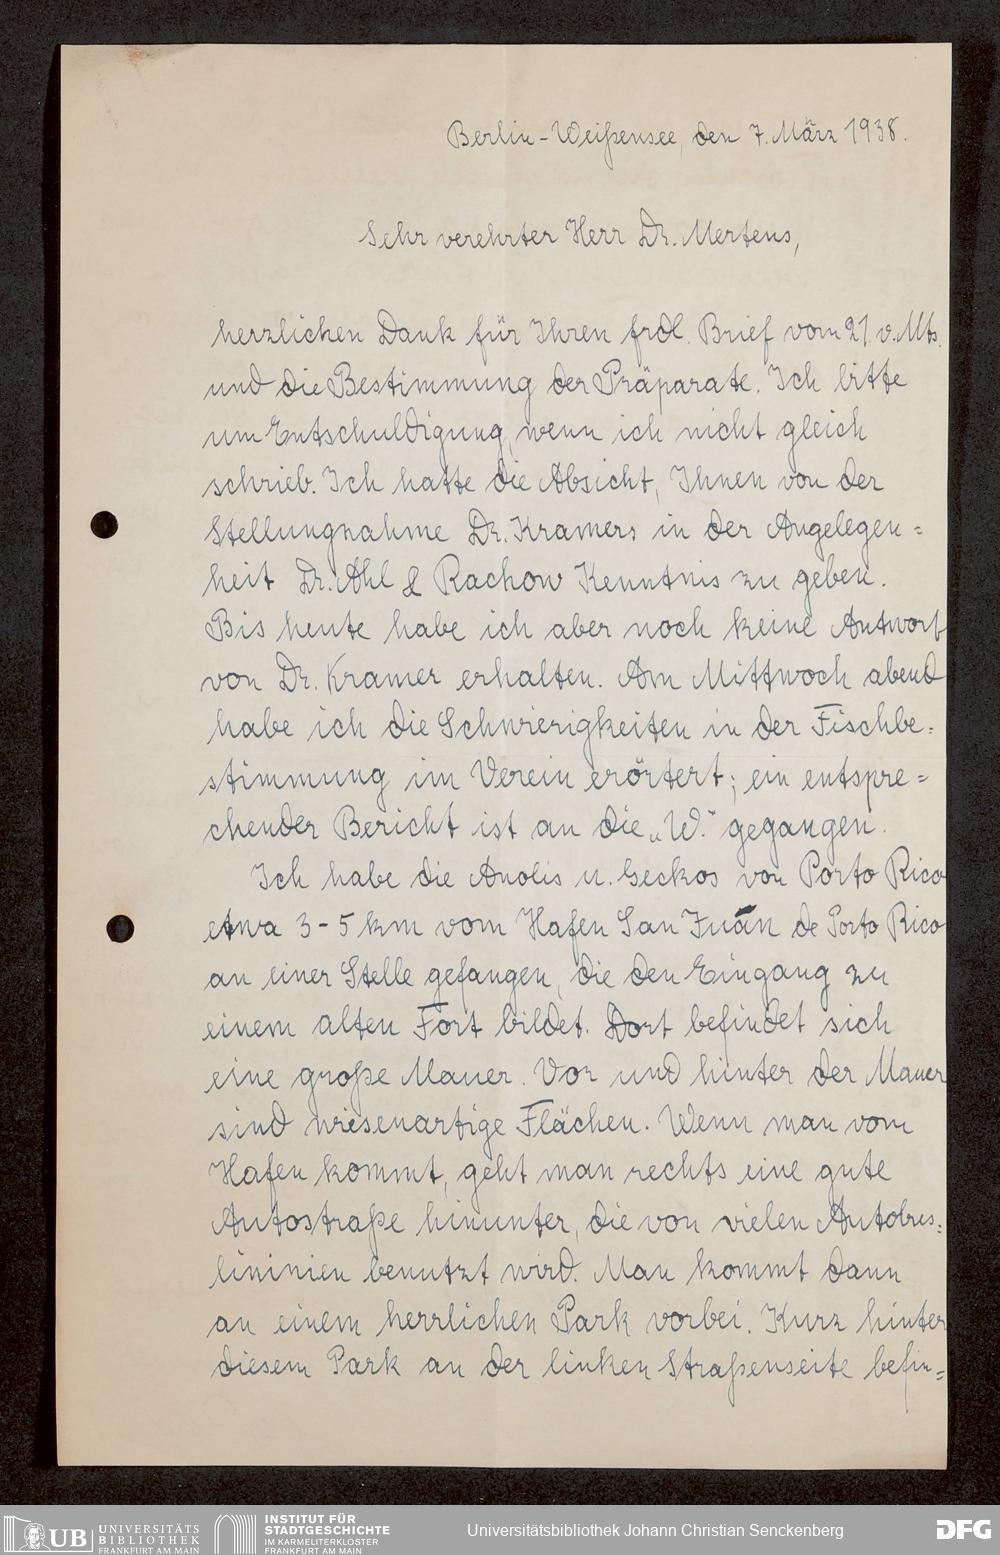 Berlin-Weißensee, den 7. März 1938.
Sehr verehrter Herr Dr. Mertens,
herzlichen Dank für Ihren frdl. Brief vom 21. v. Mts.
und die Bestimmung der Präparate. Ich bitte
um Entschuldigung, wenn ich nicht gleich
schrieb. Ich hatte die Absicht, Ihnen von der
Stellungnahme Dr. Kramers in der Angelegen=
heit Dr. Ahl & Rachow Kenntnis zu geben.
Bis heute habe ich aber noch keine Antwort
von Dr. Kramer erhalten. Am Mittwoch abend
habe ich die Schwierigkeiten in der Fischbe=
stimmung im Verein erörtert; ein entspre=
chender Bericht ist an die „W." gegangen.
Ich habe die Anolis u. Geckos von Porto Rico
etwa 3-5 km vom Hafen San Juan de Porto Rico
an einer Stelle gefangen, die den Eingang zu
einem alten Fort bildet. Dort befindet sich
eine große Mauer. Vor und hinter der Mauer
sind wiesenartige Flächen. Wenn man vom
Hafen kommt, geht man rechts eine gute
Autostraße hinunter, die von vielen Autobus=
lininien benutzt wird. Man kommt dann
an einem herrlichen Park vorbei. Kurz hinter
diesem Park an der linken Straßenseite befin=
UB UNIVERSITÄTS
BIBLIOTHEK
FRANKFURT AM MAIN
INSTITUT FÜR
STADTGESCHICHTE
IM KARMELITERKLOSTER
FRANKFURT AM MAIN
Universitätsbibliothek Johann Christian Senckenberg
DFG